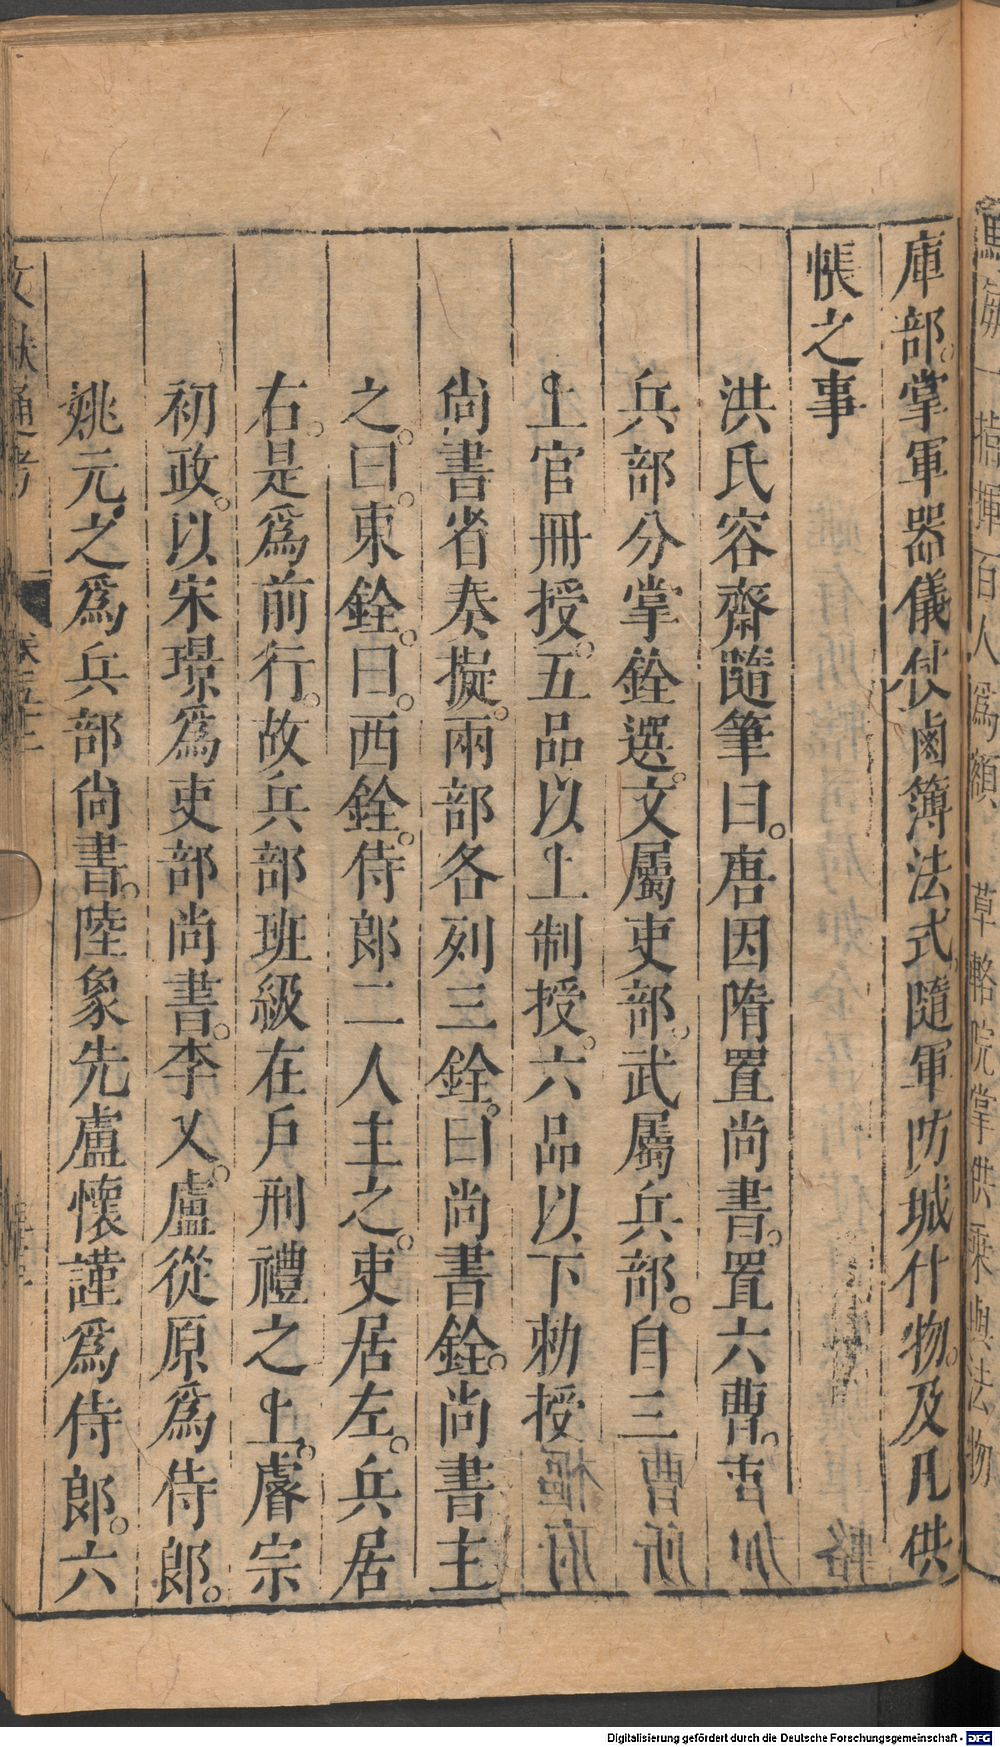 庫部掌軍器儀仗鹵簿法式隨軍防城什物及凡供
帳之事
洪氏容齋隨筆曰。唐因隋置尚書。置六曹。吏
兵部分掌銓選。文屬吏部。武屬兵部。自三
上官冊授。五品以上制授。六品以下勅授
尚書省奏擬。兩部各列三銓。曰尚書銓。尚書主
之。曰。東銓。曰。西銓。侍郎二人主之。吏居左。兵居
右。是爲前行。故兵部班級在戶刑禮之上。睿宗
初政。以宋璟爲吏部尚書。李乂。盧從原爲侍郎。
姚元之爲兵部尚書。陸象先盧懷謹爲侍郎。六
文獻通考
Digitalisierung gefördert durch die Deutsche Forschungsgemeinschaft - DFG